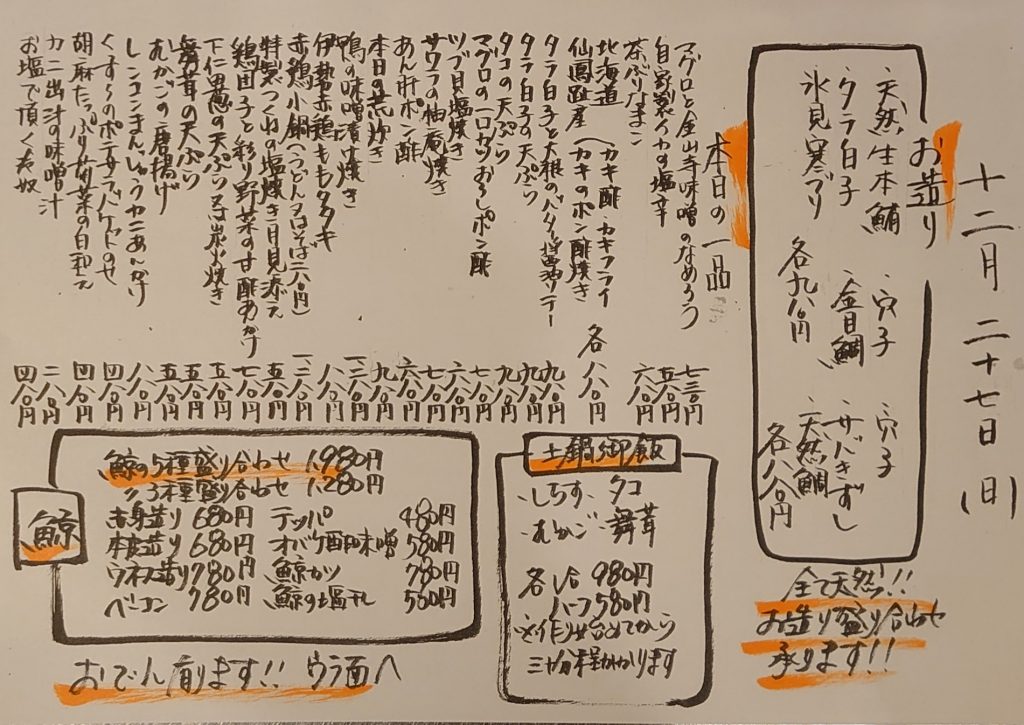 十二月二十七日(日)
お造り
天然生本鮪
タラ白子
氷見寒ブリ
各九八〇円
穴子
金目鯛
穴子
サバきずし
天然鯛
各八八〇円
全て天然!!
お造り盛り合わせ
承ります!!
本日の一品
マグロと金山寺味噌のなめろう 七三〇円
自家製イカの塩辛 五八〇円
茶ぶりなまこ 六八〇円
北海道
仙鳳趾産
(カキ酢・カキフライ
(カキのポン酢焼き
各八八〇円
タラ白子と大根のバター醤油ソテー 九八〇円
タラ白子の天ぷら 九八〇円
タコの天ぷら 九八〇円
マグロの一口カツおろしポン酢 七八〇円
ツブ貝塩焼き 六八〇円
サワラの柚庵焼き 七八〇円
あん肝ポン酢 六八〇円
本日の荒炊き 九八〇円
鴨の味噌漬け焼き 一、二八〇円
伊勢赤鶏ももタタキ 八八〇円
赤鶏小鍋(うどん又はそば二八〇円) 一、二八〇円
特製つくねの塩焼き月見添え 五八〇円
鶏団子と彩り野菜の甘酢あんかけ 七八〇円
下仁田葱の天ぷら又は炭火焼き 五八〇円
舞茸の天ぷら 五八〇円
むかごの唐揚げ 五八〇円
レンコンまんじゅうカニあんかけ 八八〇円
くずしのポテサラバケットのせ 四八〇円
胡麻たっぷり菊菜の白和え 四八〇円
カニ出汁の味噌汁 二八〇円
お塩で頂く冷奴 四八〇円
土鍋御飯
・しらす ・タコ
・むかご ・舞茸
各1合 980円
ハーフ580円
※作り始めてから
三十分程かかります
鯨
鯨の5種盛り合わせ 1,980円
〃3種盛り合わせ 1,280円
赤身造り 680円
本皮造り 680円
ウネス造り 780円
ベーコン 780円
テッパ 480円
オバケ酢味噌 580円
鯨カツ 780円
鯨の塩干し 500円
おでん有ります!! ウラ面へ